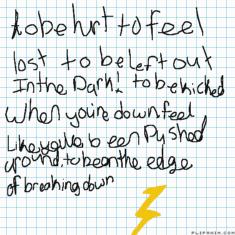 to be hurt to feel
lost to be left out
In the Dark! to be kicked
when you're down feel
Like you've been Pushed
around, to be on the edge
of breaking down
FLIPANIM.COM